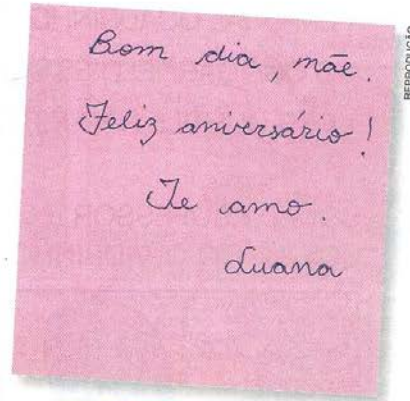 Bom dia, mãe.
Feliz aniversário!
Te amo.
Luana
REPRODUÇÃO